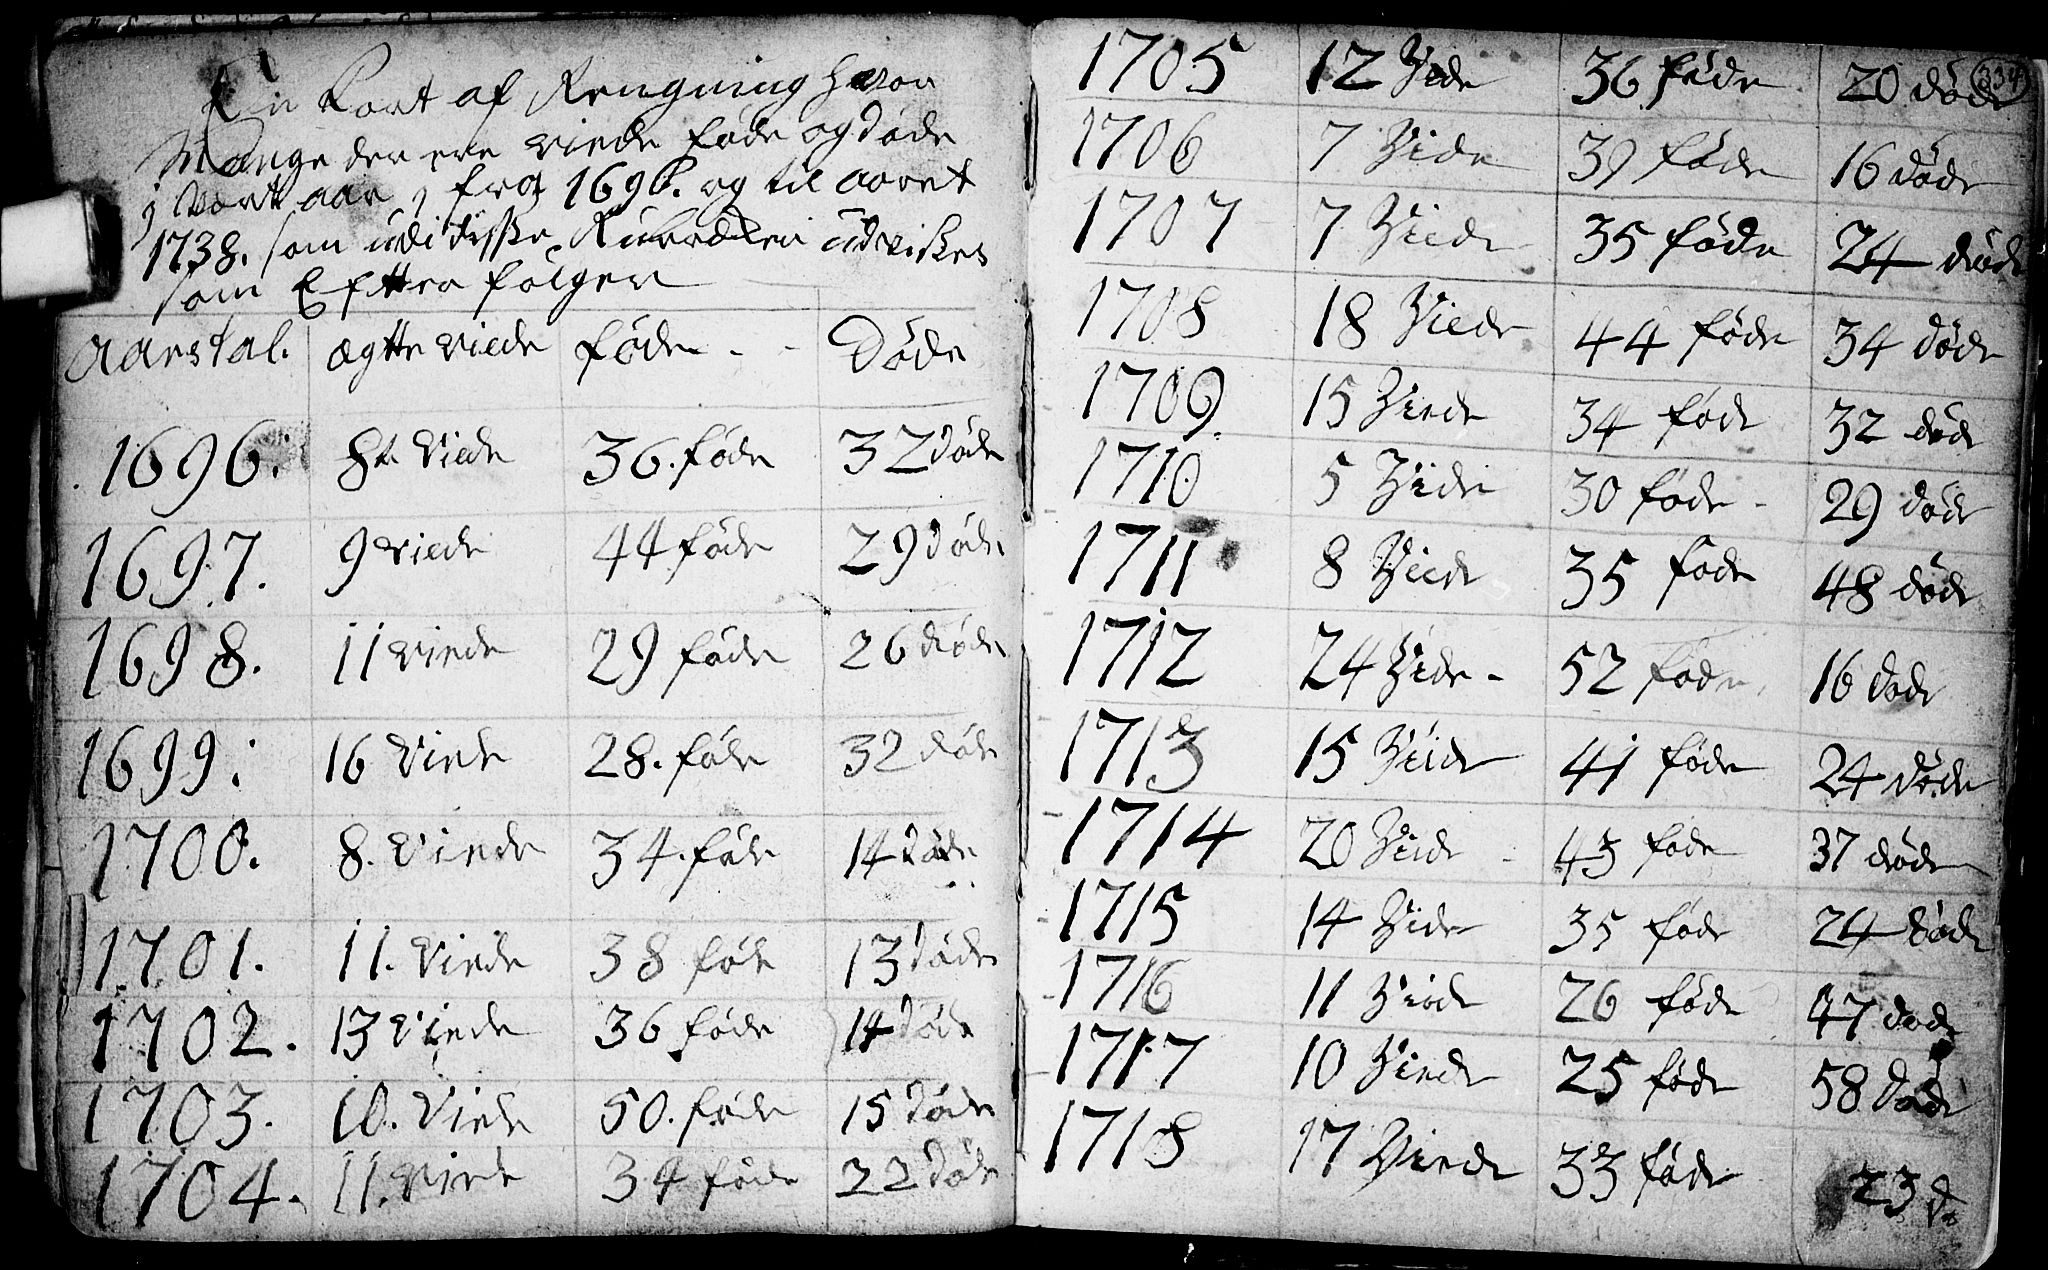 En Kort af Rengning hvor
Mange der ere viede føde og døde
j Vort aar j fra 1696. og til aaret
1738. som udi disse Rubrikker üdvises
som Efitter følger
Aarstal. ægtte viede føde - - Døde
1696. 8t. viede 36. føde 32 døde
1697. 9 viede 44 føde 29 døde
1698. 11 viede 29 føde 26 døde
1699: 16 Viede 28. føde 32 døde
1700. 8. Viede 34. føde 14 døde
1701. 11. Viede 38 føde 13 døde
1702. 13 Viede 36 føde 14 døde
1703. 10. Viede 50. føde 15 døde
1704. 11. Viede 34 føde 22 døde
334
1705 12 Vide 36 føde 20 døde
1706 7 Vide 39 føde 16 døde
1707 7 Viede 35 føde 24 døde
1708 18 Viede 44 føde 34 døde
1709. 15 Viede 34 føde 32 døde
1710 5 Vide 30 føde - 29 døde
1711 8 Viede 35 føde 48 døde
1712 24 Vide - 52 føde 16 døde
1713 15 Viede 41 føde 24 døde
1714 20 Viede - 43 føde 37 døde
1715 14 Vide 35 føde 24 døde
1716 11 Viede 26 føde 47 døde
1717 10 Viede 25 føde 58 døde
1718 17 Viede 33 føde 23 dø